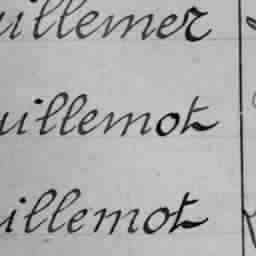 uillemer
uillemot
uillemot